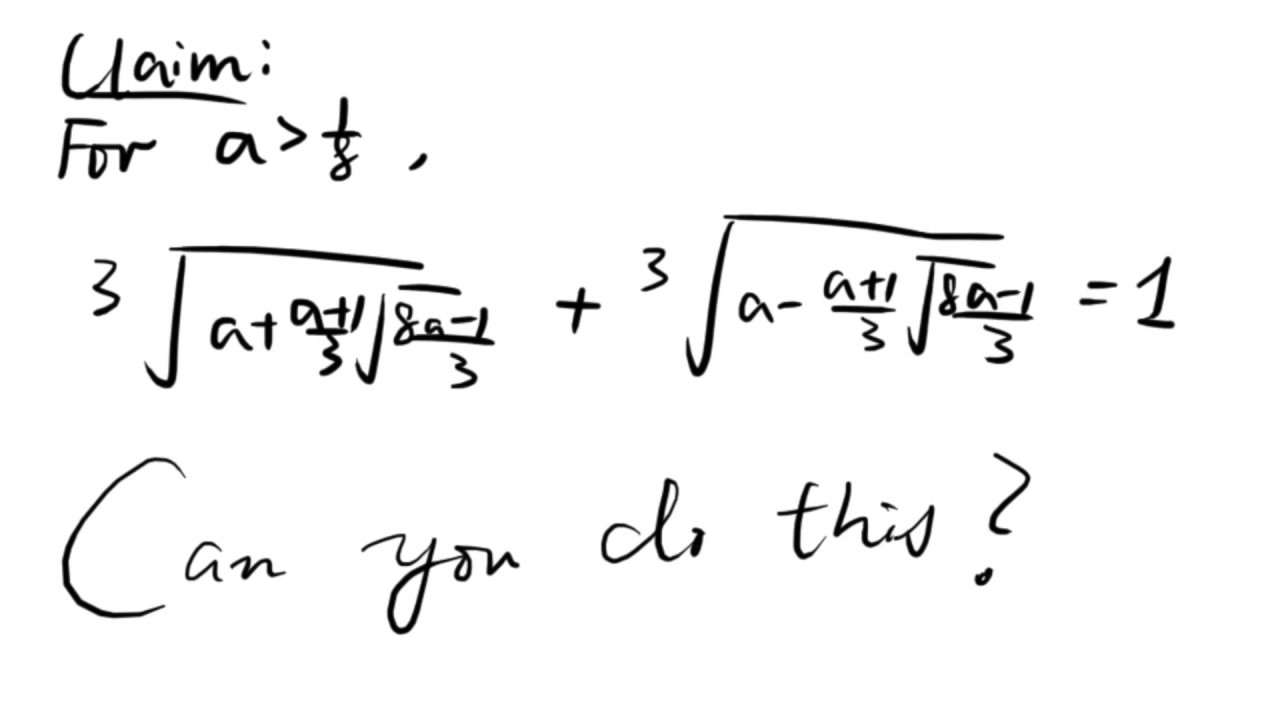 Claim:
For a > 1/8 ,
∛(a + (a+1)/3 √((8a-1)/3)) + ∛(a - (a+1)/3 √((8a-1)/3)) = 1
Can you do this?